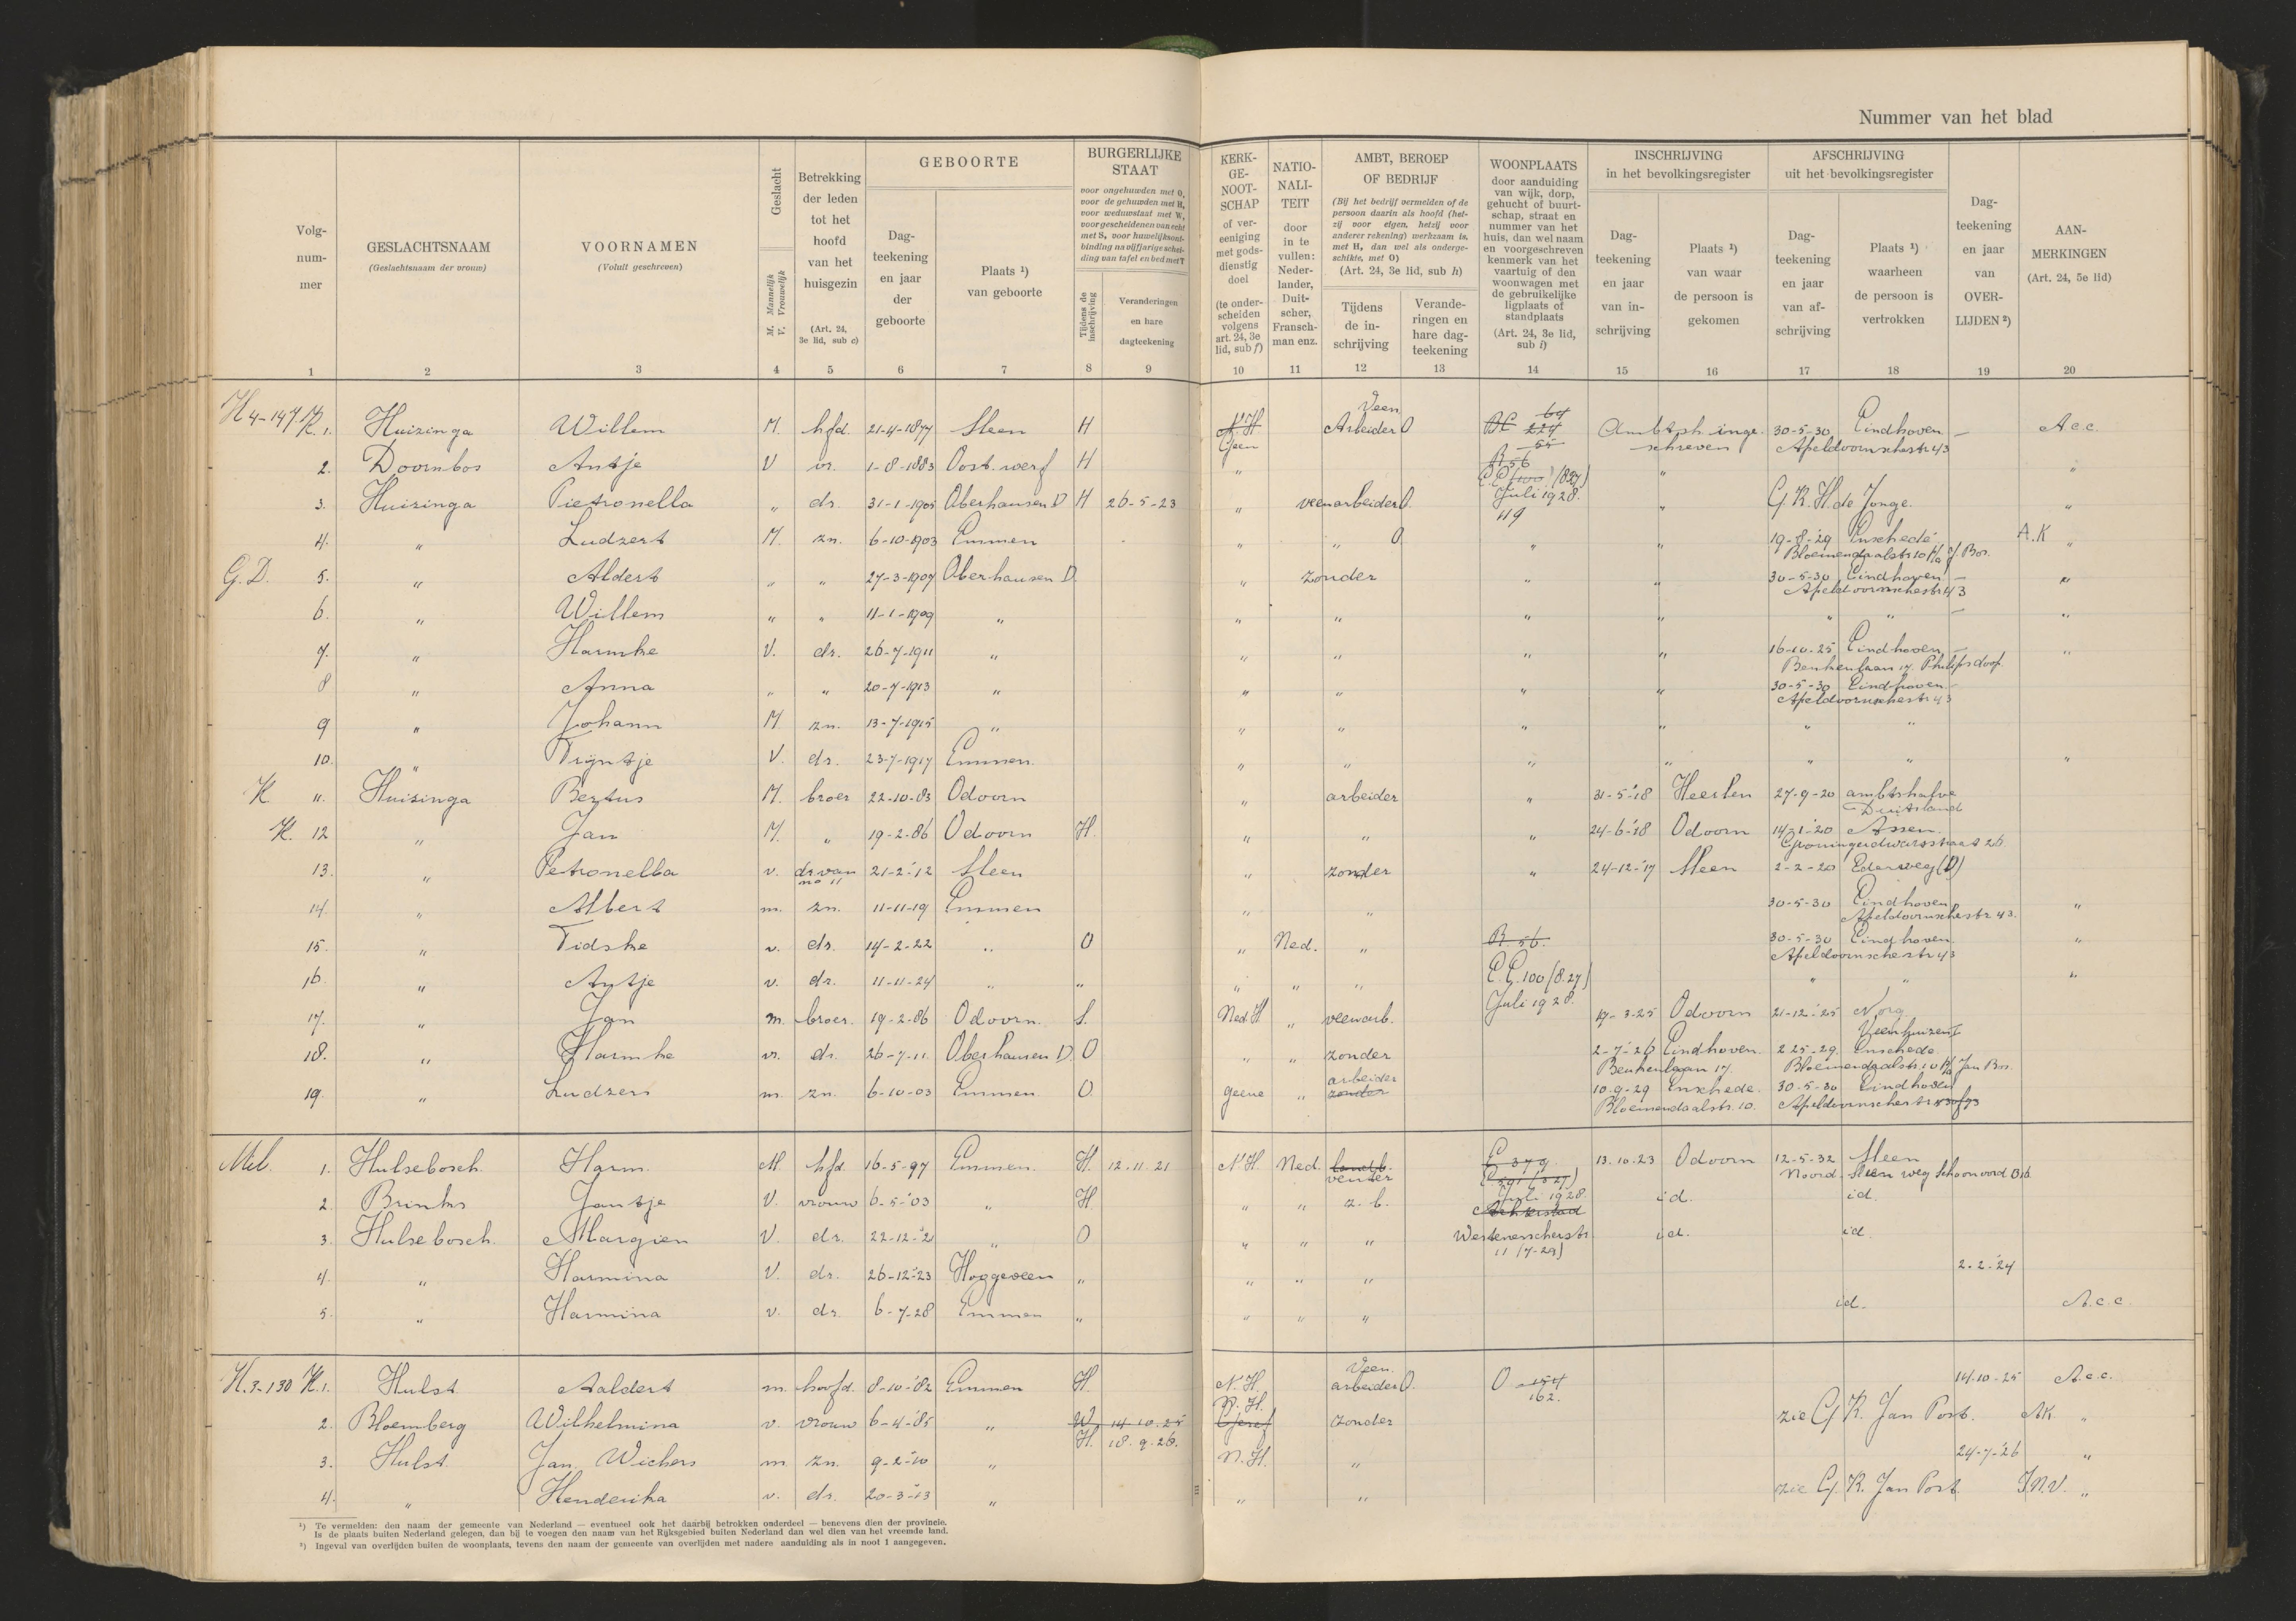 Nummer van het blad
Volg-
num-
mer
GESLACHTSNAAM
(Geslachtsnaam der vrouw)
VOORNAMEN
(Voluit geschreven)
Geslacht
M. Mannelijk
V. Vrouwelijk
Betrekking
der leden
tot het
hoofd
van het
huisgezin
(Art. 24,
3e lid, sub c)
GEBOORTE
Dag-
teekening
en jaar
der
geboorte
Plaats ¹)
van geboorte
BURGERLIJKE
STAAT
voor ongehuwden met O,
voor de gehuwden met H,
voor weduwstaat met W,
voor gescheidenen van echt
met S, voor huwelijksont-
binding na vijfjarige schei-
ding van tafel en bed met T
Tijdens de
inschrijving
Veranderingen
en hare
dagteekening
KERK-
GE-
NOOT-
SCHAP
of ver-
eeniging
met gods-
dienstig
doel
(te onder-
scheiden
volgens
art. 24, 3e
lid, sub f)
NATIO-
NALI-
TEIT
door
in te
vullen:
Neder-
lander,
Duit-
scher,
Fransch-
man enz.
AMBT, BEROEP
OF BEDRIJF
(Bij het bedrijf vermelden of de
persoon daarin als hoofd (het-
zij voor eigen, hetzij voor
anderer rekening) werkzaam is,
met H, dan wel als onderge-
schikte, met O)
(Art. 24, 3e lid, sub h)
Tijdens
de in-
schrijving
Verande-
ringen en
hare dag-
teekening
WOONPLAATS
door aanduiding
van wijk, dorp,
gehucht of buurt-
schap, straat en
nummer van het
huis, dan wel naam
en voorgeschreven
kenmerk van het
vaartuig of den
woonwagen met
de gebruikelijke
ligplaats of
standplaats
(Art. 24, 3e lid,
sub i)
INSCHRIJVING
in het bevolkingsregister
Dag-
teekening
en jaar
van in-
schrijving
Plaats ¹)
van waar
de persoon is
gekomen
AFSCHRIJVING
uit het bevolkingsregister
Dag-
teekening
en jaar
van af-
schrijving
Plaats ¹)
waarheen
de persoon is
vertrokken
Dag-
teekening
en jaar
van
OVER-
LIJDEN ²)
AAN-
MERKINGEN
(Art. 24, 5e lid)
1 2 3 4 5 6 7 8 9 10 11 12 13 14 15 16 17 18 19 20
H4-147 K. 1. Huizinga Willem M. hfd. 21-4-1877 Sleen H N.H. Geen Veen Arbeider O Ambtsh. inge- schreven 30-5-30 Eindhoven – A.c.c.
Apeldoornschestr 43
2. Doornbos Antje V vr. 1-8-1883 Oost. werf H " R 56 " "
3. Huizinga Pietronella " dr. 31-1-1901 Oberhausen D H 26-5-23 " veenarbeider O. Juli 1928. 49 " G.K. H. de Jonge. "
4. " Ludzert M. zn. 6-10-1903 Emmen " " O " " 19-8-29 Enschedé A.K "
Bloemendaalstr 10 p/a J. Bos.
G.D. 5. " Aldert " " 27-3-1907 Oberhausen D. " zonder " " 30-5-30 Eindhoven – "
Apeldoornschestr 43
6. " Willem " " 11-1-1909 " " " " " " " – "
7. " Harmke V. dr. 26-7-1911 " " " " " 16-10-25 Eindhoven – "
Beukenlaan 17. Philipsdorp.
8 " Anna " " 20-7-1913 " " " " " 30-5-30 Eindhoven –
Apeldoornschestr 43
9 " Johann M. zn. 13-7-1915 " " " " " " "
10. " Trijntje V. dr. 23-7-1917 Emmen. " " " " " " "
K 11. Huizinga Bertus M. broer 22-10-83 Odoorn " arbeider " 31-5-'18 Heerlen 27-9-20 ambtshalve
Duitsland
K. 12 " Jan M. " 19-2-86 Odoorn H. " " " 24-6-'18 Odoorn 14-1-'20 Assen.
Groningerdwarsstraat 26.
13. " Petronella v. dr. van no 11 21-2-'12 Sleen " zonder " 24-12-'17 Sleen 2-2-20 Ederweg (D)
14. " Albert m. zn. 11-11-19 Emmen " " 30-5-30 Eindhoven "
Apeldoornschestr 43.
15. " Tidske v. dr. 14-2-22 " O " Ned. " R. 56. 30-5-30 Eindhoven "
Apeldoornschestr 43
16. " Antje v. dr. 11-11-24 " " " " " E.E. 100 (8.27) " " "
Juli 1928.
17. " Jan m. broer. 19-2-86 Odoorn. S. Ned. H " veenarb. 17-3-25 Odoorn 21-12-'25 Norg
Veenhuizen I
18. " Harmke v. dr. 26-7-11. Oberhausen D. O " " zonder 2-7-'26 Eindhoven. 2 25-29. Enschede.
Beukenlaan 17. Bloemendaalstr. 10 p/a Jan Bos.
19. " Ludzers m. zn. 6-10-03 Emmen O geene " arbeider zonder 10-9-29 Enschede. 30-5-30 Eindhoven
Bloemendaalstr. 10. Apeldoornschestr
Mel. 1. Hulsebosch Harm. M. hfd. 16-5-97 Emmen. H. 12-11-21 N.H. Ned. landb. venter E 379 13.10.23 Odoorn 12-5-32 Sleen
Noord-Sleen weg Schoonoord B16
2. Brinks Jantje V. vrouw 6-5-'03 " H. " " z.b. Juli 1928 id. id.
3. Hulsebosch. Margien V. dr. 22-12-'21 " O " " " Westenenscherstr. 11 (7-29) id. id.
4. " Harmina V. dr. 26-12-'23 Hoogeveen " " " " 2-2-'24
5. " Harmina v. dr. 6-7-28 Emmen " " " " id. A.c.c.
H.3-130 K. 1. Hulst Aaldert m. hoofd. 8-10-'82 Emmen H. N.H. Veen. arbeider O. O 154 162. 14-10-25 A.c.c.
2. Bloemberg Wilhelmina v. vrouw 6-4-'85 " W. 14.10.25 N.H. Geref zonder zie G.K. Jan Post. AK. "
H. 18.9.26.
3. Hulst. Jan Wichers m. zn. 9-2-'10 " N.H. " 24-7-'26 "
4. " Henderika v. dr. 20-3-'13 " " " zie G.K. Jan Post. I.N.V. "
¹) Te vermelden: den naam der gemeente van Nederland — eventueel ook het daarbij betrokken onderdeel — benevens dien der provincie.
Is de plaats buiten Nederland gelegen, dan bij te voegen den naam van het Rijksgebied buiten Nederland dan wel dien van het vreemde land.
²) Ingeval van overlijden buiten de woonplaats, tevens den naam der gemeente van overlijden met nadere aanduiding als in noot 1 aangegeven.